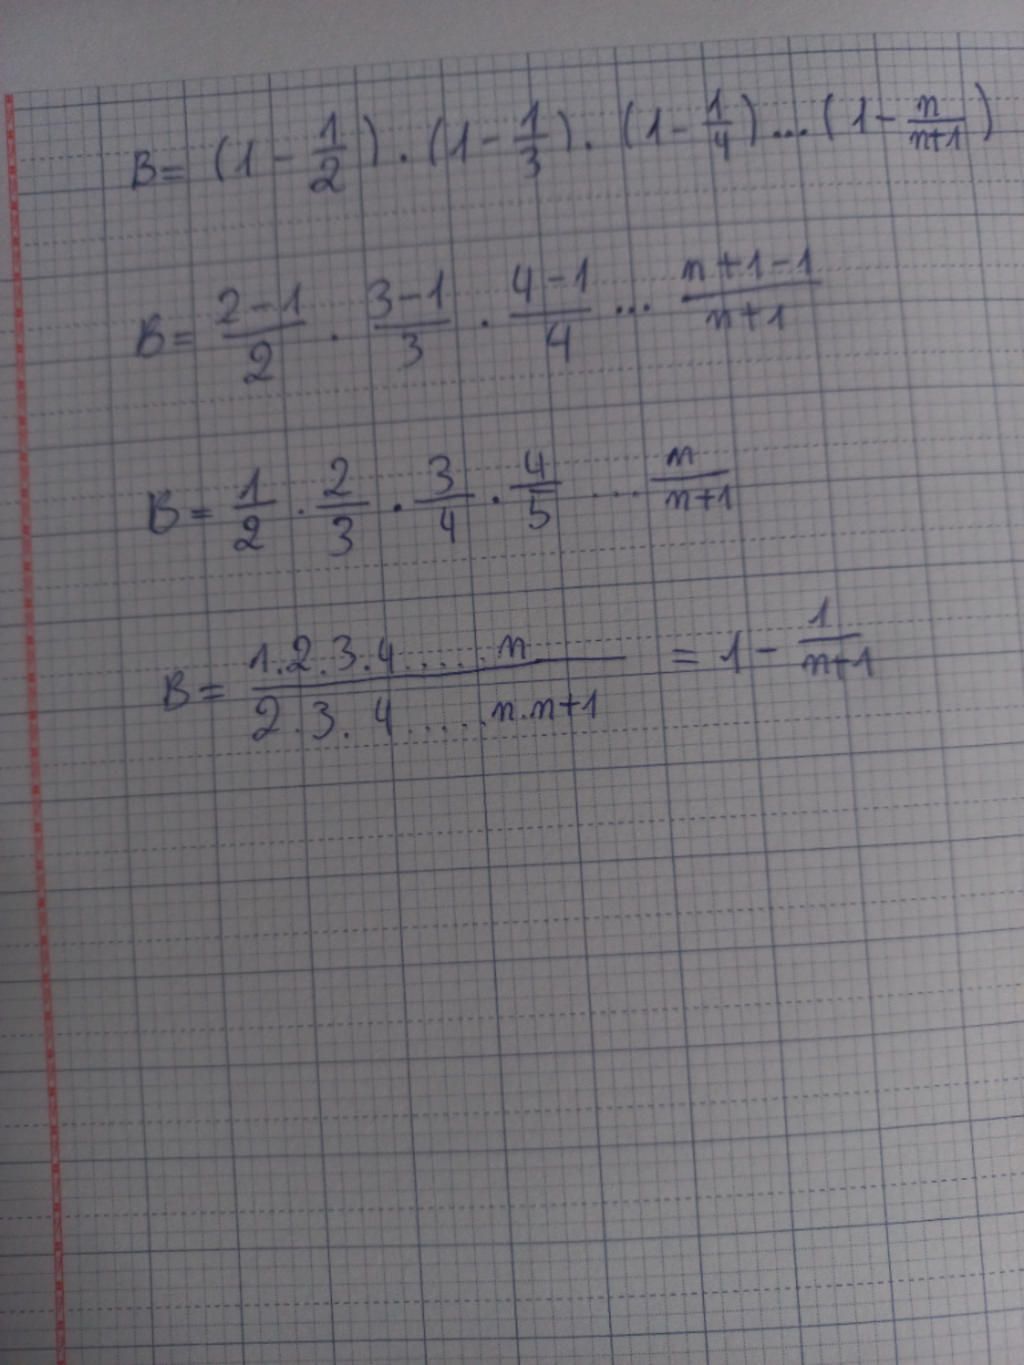 B = (1 - 1/2) . (1 - 1/3) . (1 - 1/4) ... (1 - n/n+1)
B = 2-1/2 . 3-1/3 . 4-1/4 ... n+1-1/n+1
B = 1/2 . 2/3 . 3/4 . 4/5 ... n/n+1
B = 1.2.3.4.....n/2.3.4.....n.n+1 = 1 - 1/n+1